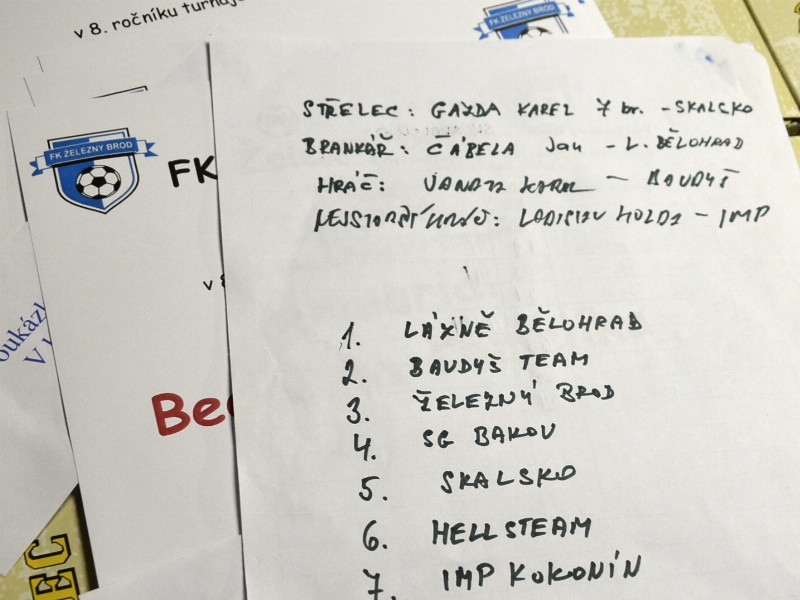 v 8. ročníku turnaje
FK ŽELEZNÝ BROD
FK
v 8
Bec
V
STŘELEC: GAZDA KAREL 7 br. - SKALSKO
BRANKÁŘ: ČÁBELA Jan - L. BĚLOHRAD
HRÁČ: VANDA KAREL - BAUDYŠ
NEJSTARŠÍ HRÁČ: LADISLAV HOLDA - IMP
1. LÁZNĚ BĚLOHRAD
2. BAUDYŠ TEAM
3. ŽELEZNÝ BROD
4. SG BAKOV
5. SKALSKO
6. HELLSTEAM
7. IMP KOKONÍN